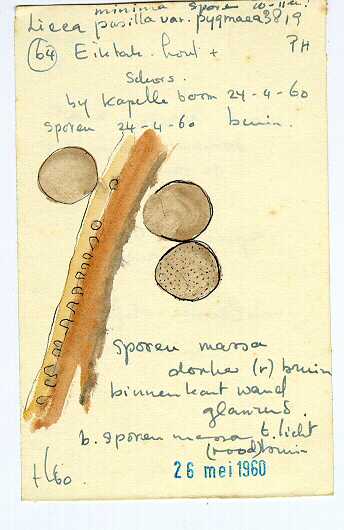 minima sporen 10-11 u.
Licea pusilla var. pygmaea 3819
(64) Eiktak. hout + PH
Schors.
by Kapelle boom 24-4-60
sporen 24-4-60 bruin.
sporen massa
donker (r) bruin
binnenkant wand
glanzend.
b. sporen massa t. licht
(rood)bruin
t/60.
26 mei 1960